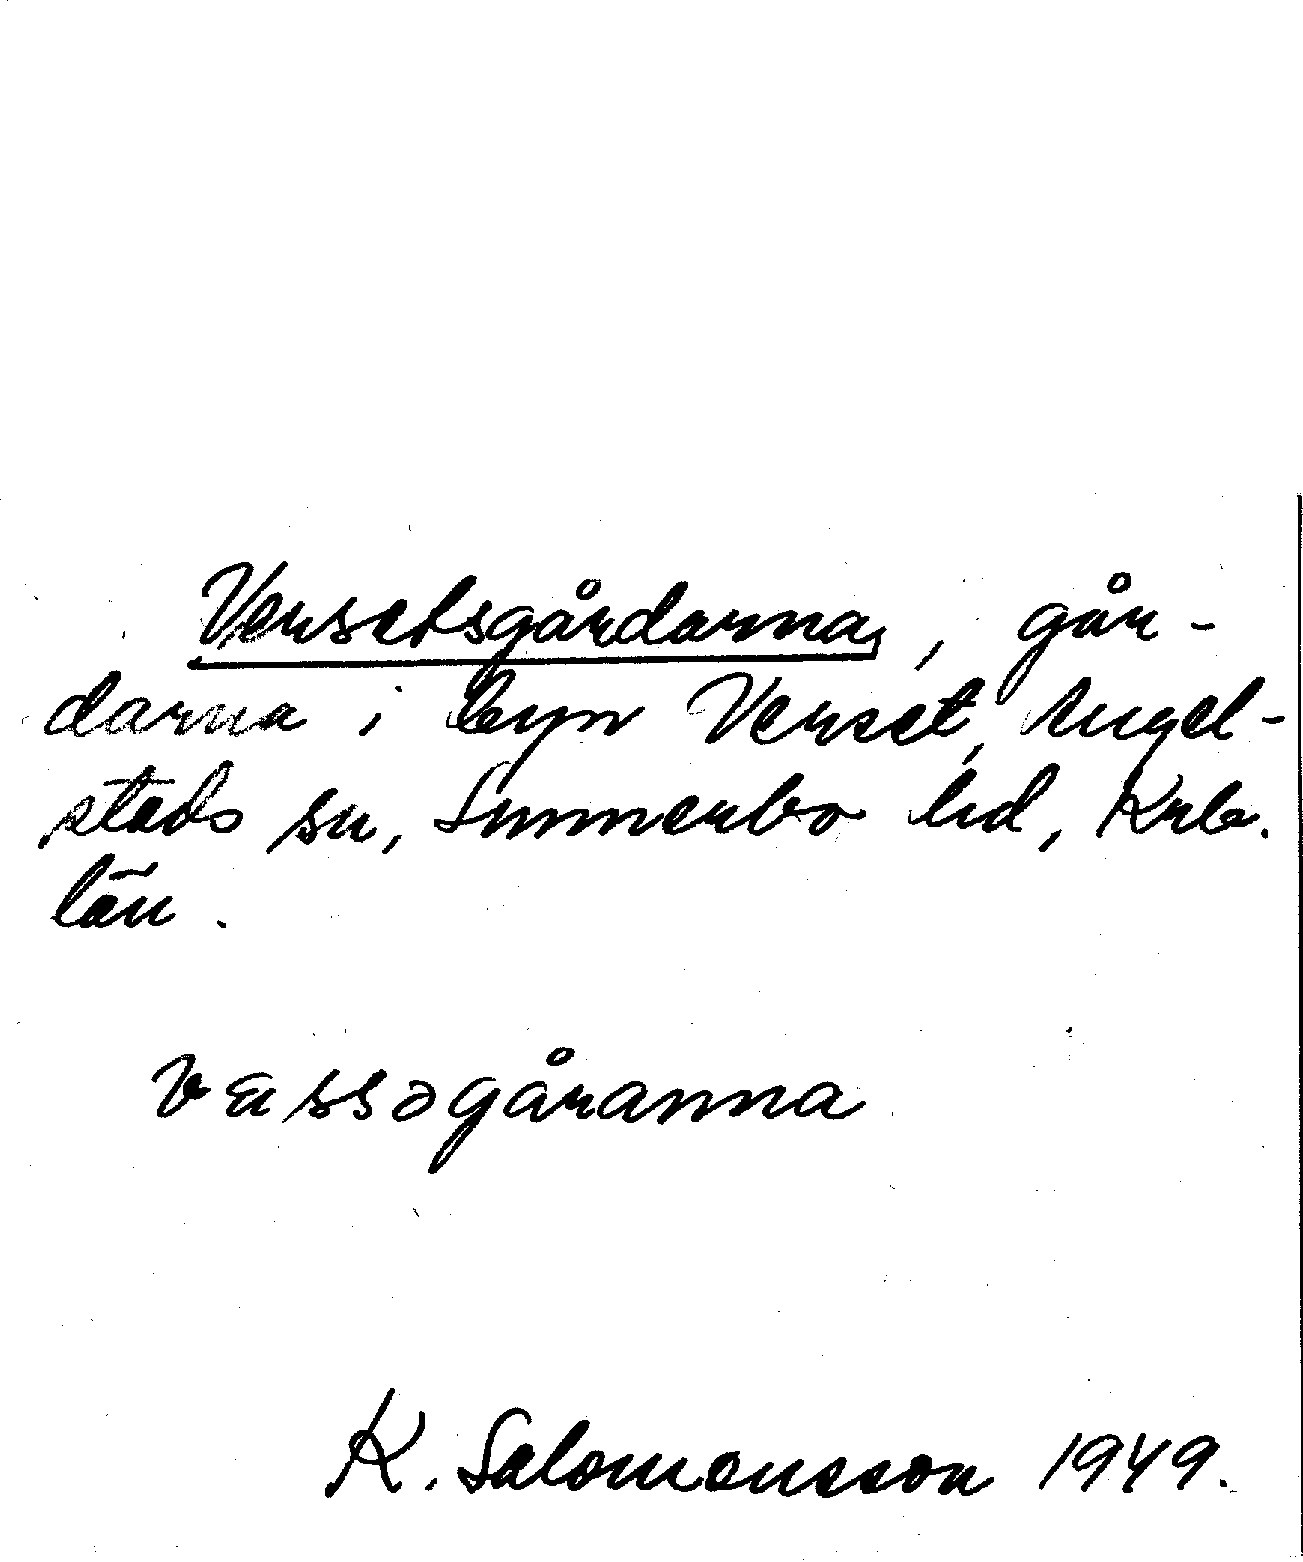 Versetsgårdarna, går-
darna i byn Verset, Angel-
stads sn, Sunnerbo hd, Krb.
län.
væssəgåranna
K. Salomonsson 1949.